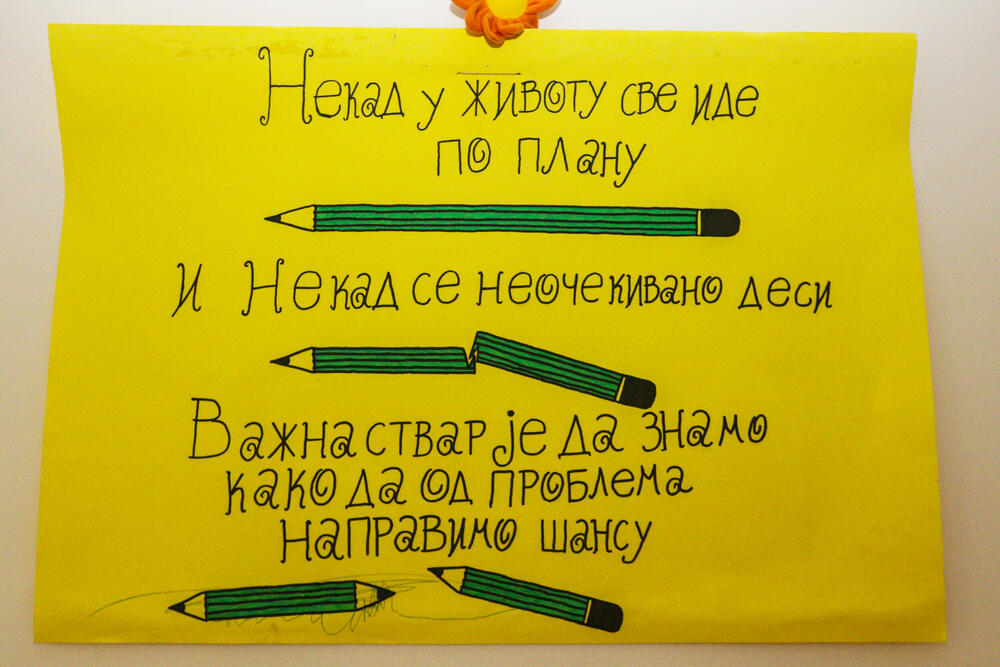 Некад у животу све иде
по плану
И Некад се неочекивано деси
Важна ствар је да знамо
како да од проблема
направимо шансу